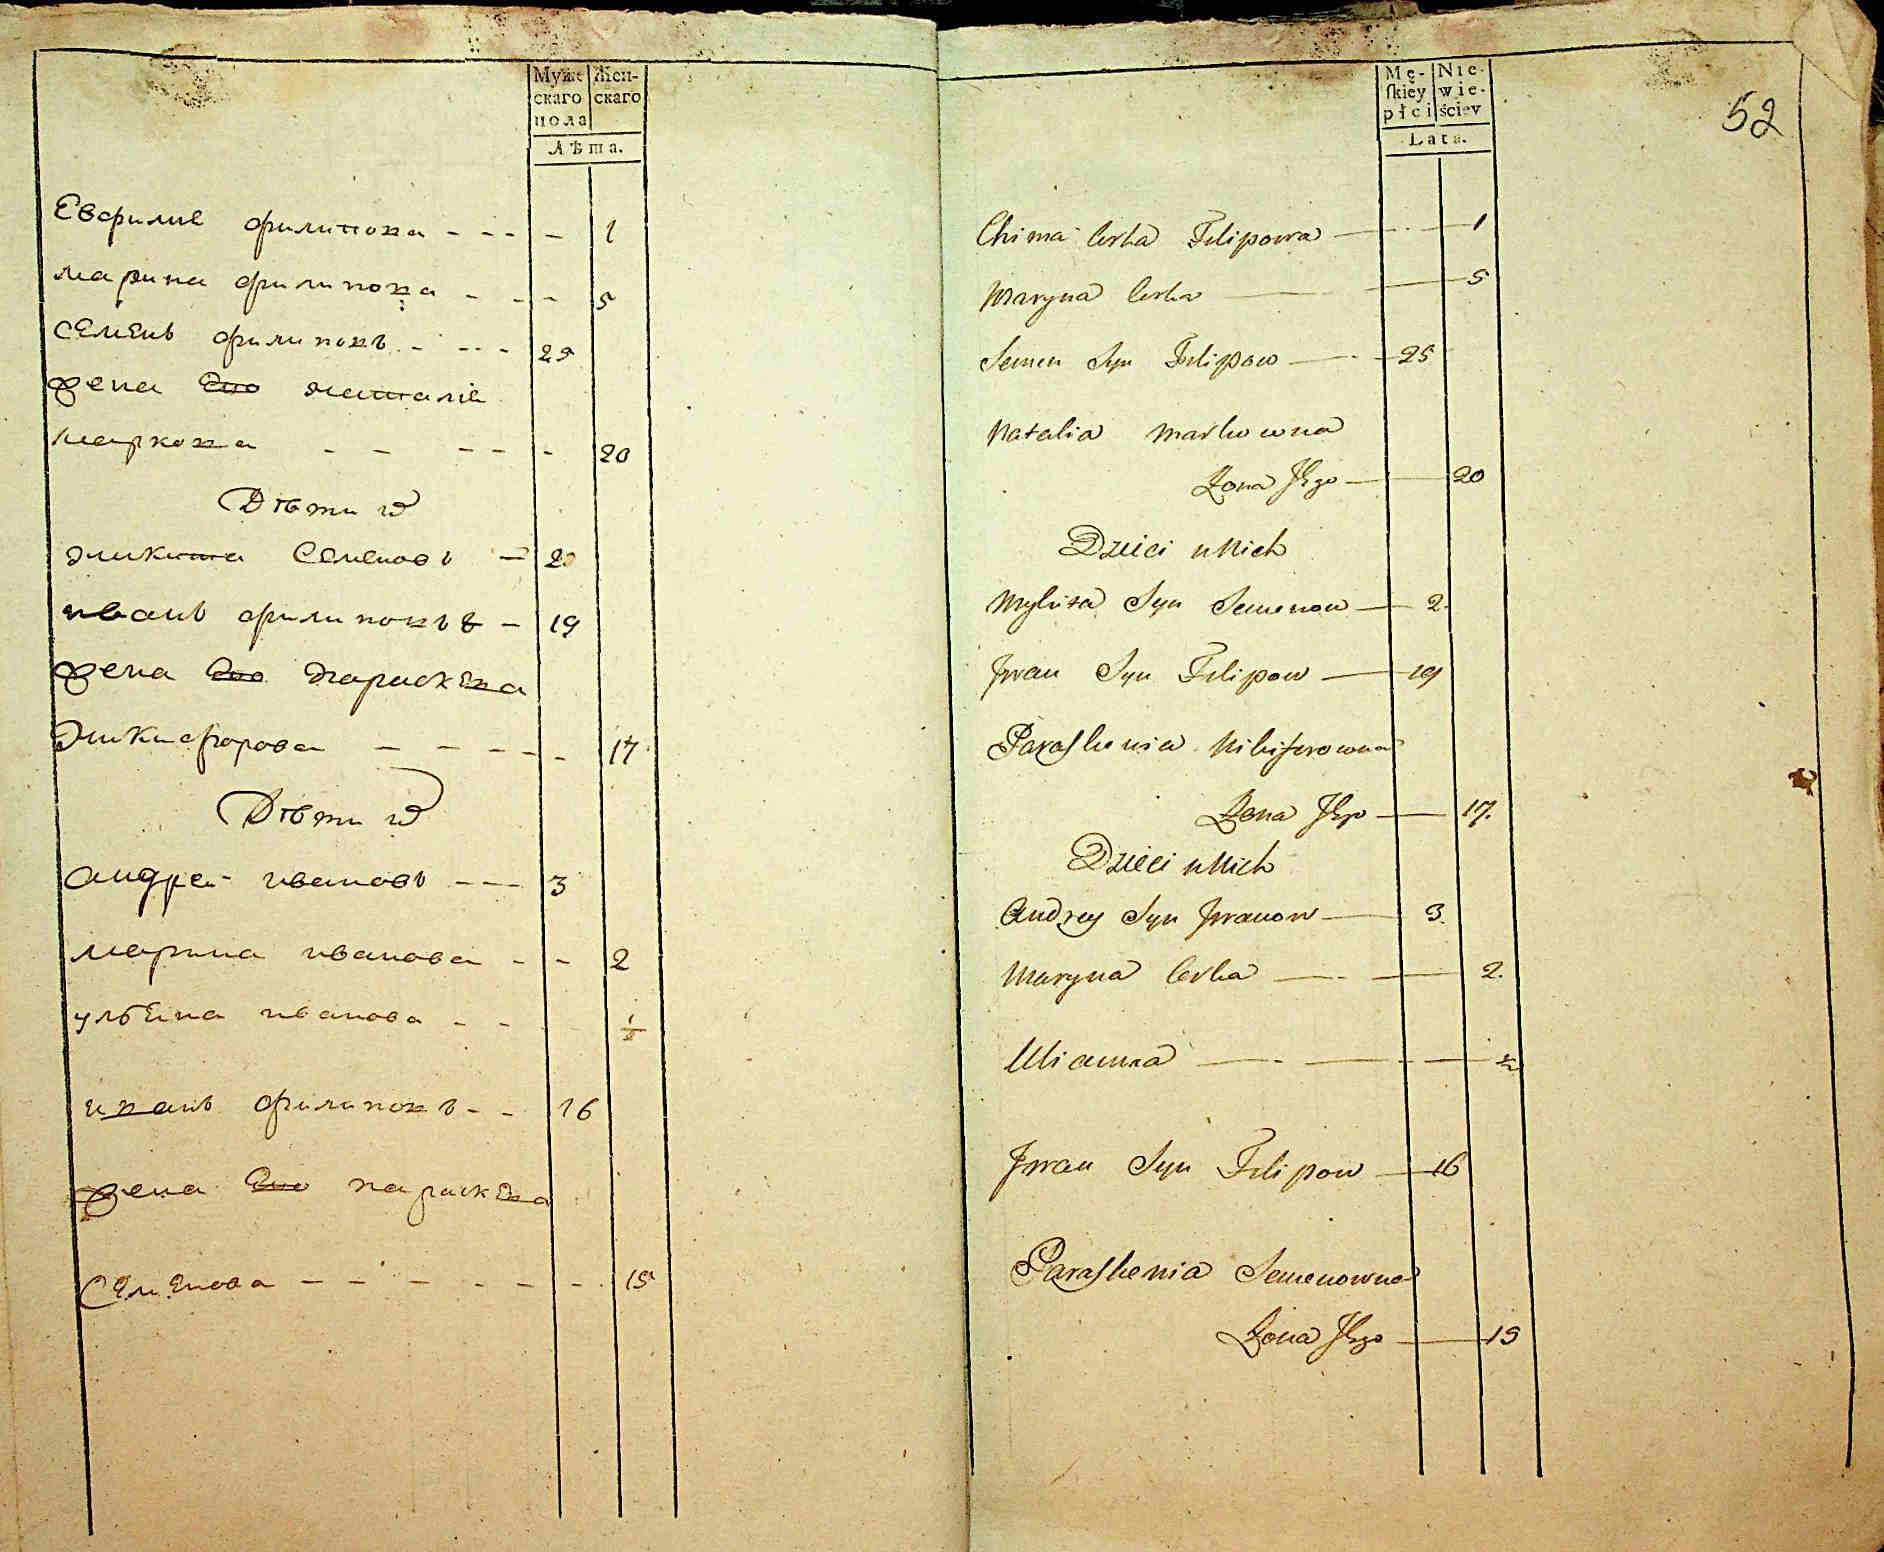 Муже
скаго
пола
Жен-
скаго
Лѣта.
Евфиміе филипова - - - - 1
марина филипова - - - 5
семенъ филиповъ - - - 25
жена Его наталіе
маркова - - - - - 20
Дѣти их
никита Семеновъ - 2
иванъ филиповъ - 19
жена Его параскева
никифорова - - - - - 17
Дѣти их
андрей ивановъ - - - 3
марина иванова - - 2
улѣяна иванова - - ½
иванъ филиповъ - - 16
жена Его параскева
Семенова - - - - - - 15
52
Mę-
ſkiey
płci
Nie-
wie-
ściey
Lata.
Chima Corka Filipowa — 1
Maryna Corka — 5
Semen Syn Filipow — 25
Natalia Markowna
Zona Jego — 20
Dzieci u Nich
Mykita Syn Semenow — 2.
Jwan Syn Filipow — 19
Paraskewia Nikiforowna
Zona Jego — 17.
Dzieci u Nich
Andrey Syn Jwanow — 3.
Maryna Corka — 2.
Ulianna — ½
Jwan Syn Filipow — 16
Paraskewia Semenowna
Zona Jego — 15